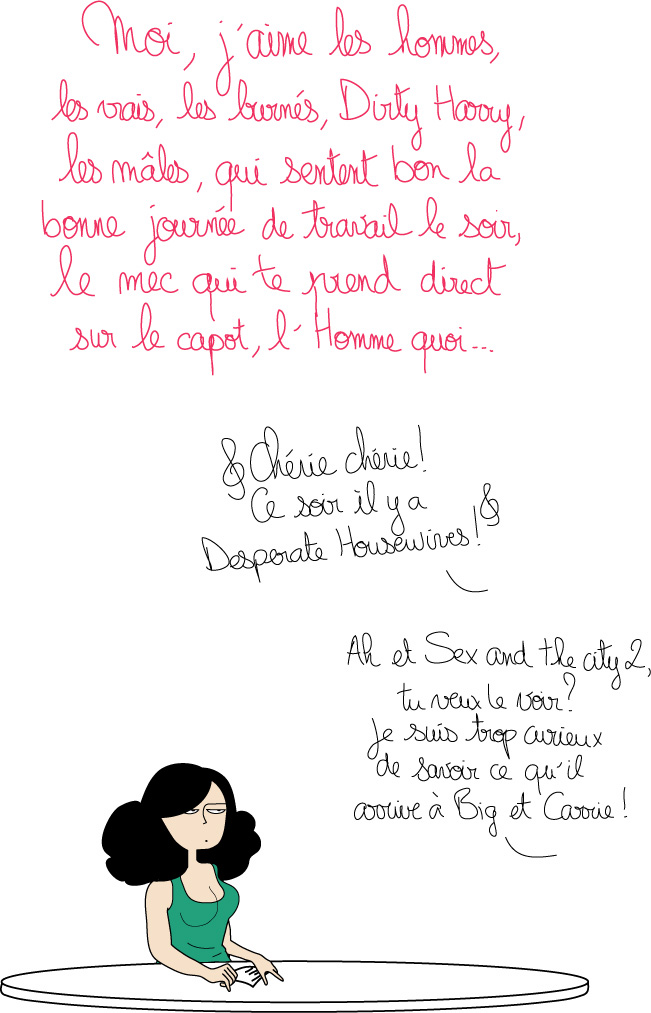 Moi, j'aime les hommes,
les vrais, les burnés, Dirty Harry,
les mâles, qui sentent bon la
bonne journée de travail le soir,
le mec qui te prend direct
sur le capot, l'Homme quoi...
Chérie chérie!
Ce soir il y a
Desperate Housewives!
Ah et Sex and the city 2,
tu veux le voir?
Je suis trop curieux
de savoir ce qu'il
arrive à Big et Carrie!